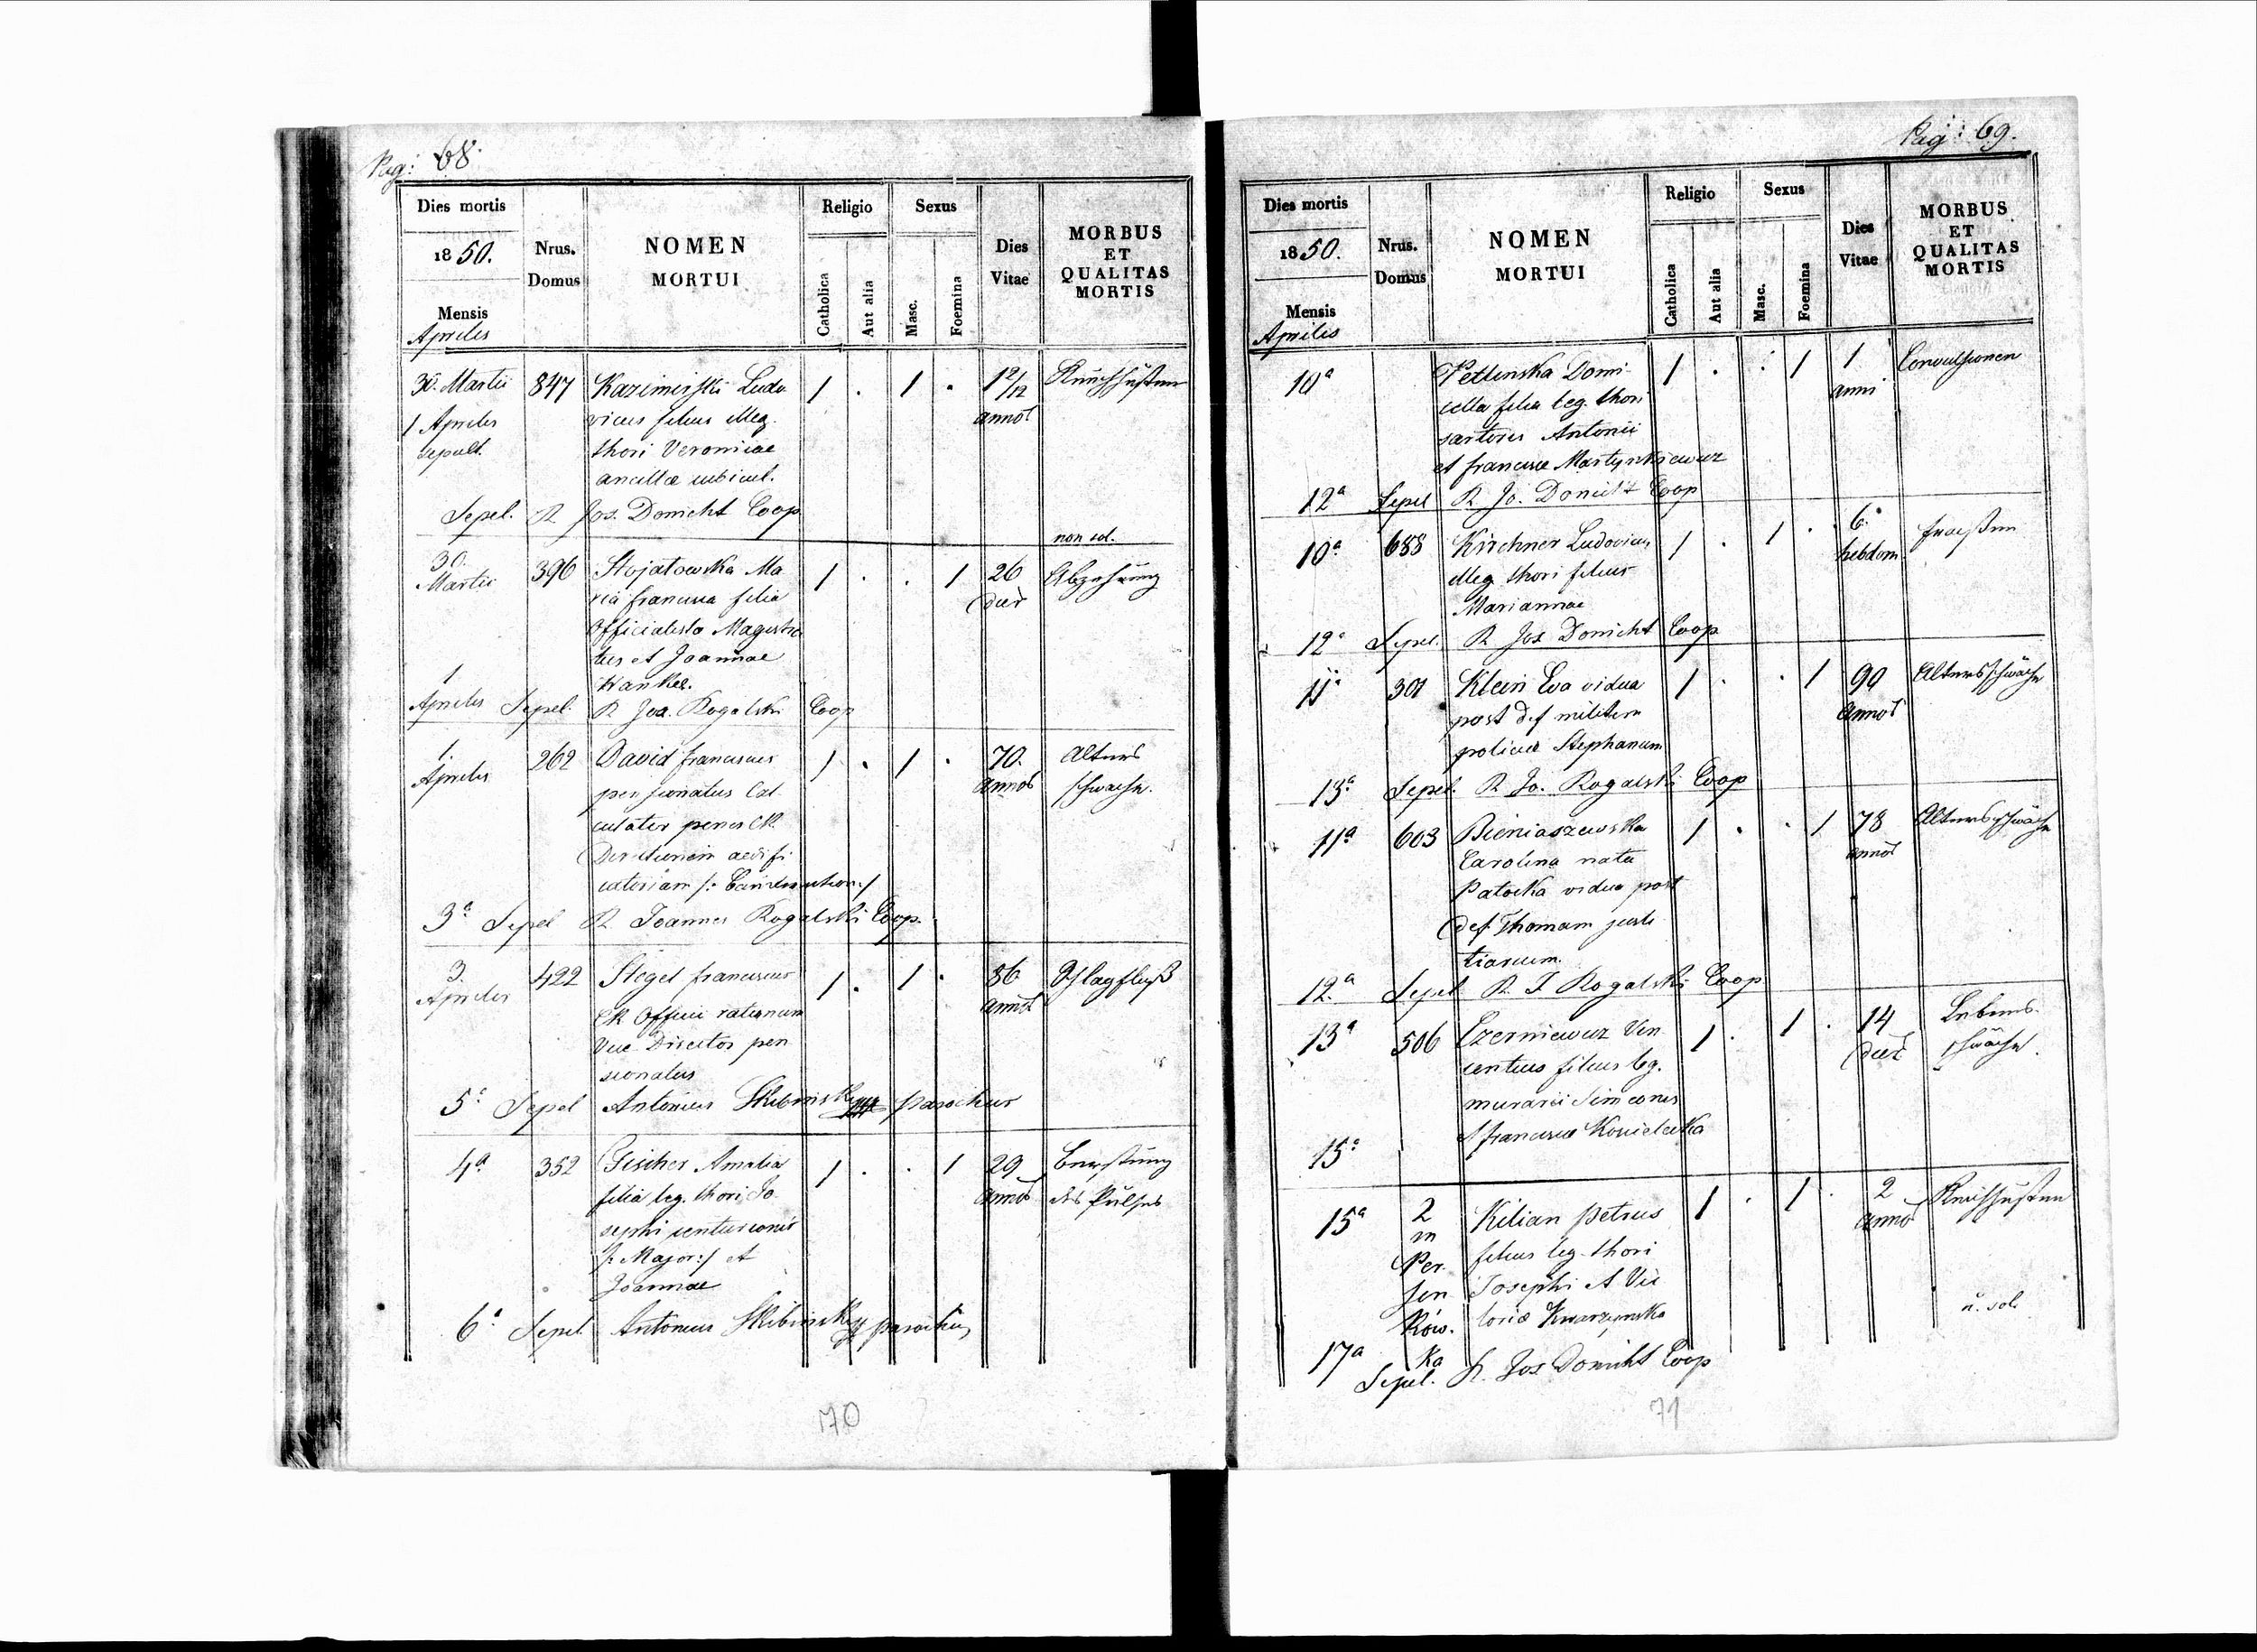 Pag: 68.
Dies mortis
1850.
Mensis
Aprilis
Nrus.
Domus
NOMEN
MORTUI
Religio
Catholica
Aut alia
Sexus
Masc.
Foemina
Dies
Vitae
MORBUS
ET
QUALITAS
MORTIS
30. Martii 847 Kazimirski Ludo 1 . 1 . 1 9/12 Keuchhusten
1 Aprilis vicus filius illeg. annor
sepult. thori Veronicae
ancillae cubicul.
Sepel. R Jos. Donicht Coop
non sol.
30. Martii 396 Stojatowska Ma 1 . . 1 26 Abzehrung
ria francisca filia dier
Officialista Magistra
tus et Joannae
Wankel.
1 Aprilis Sepel. R Joa. Rogalski Coop
1. Aprilis 262 David franciscus 1 . 1 . 70. Alters
pensionatus Cal annor schwäche.
culator penes CR.
Directionem aedifi
catoriam
3a Sepel R Joannes Rogalski Coop.
3. Aprilis 422 Stegel franciscus 1 . 1 . 86 Schlagfluß
CR Officii rationum annor
Vice Director pen
sionatus
5a Sepel Antonius Skibinski parochus
4a 352 Fischer Amalia 1 . . 1 29 Berstung
filia leg. thori Jo- annor des Pulses
sephi centurionis
/: Major :/ et
Joannae
6a Sepel Antonius Skibinski parochus
70
Pag: 69.
Dies mortis
1850.
Mensis
Aprilis
Nrus.
Domus
NOMEN
MORTUI
Religio
Catholica
Aut alia
Sexus
Masc.
Foemina
Dies
Vitae
MORBUS
ET
QUALITAS
MORTIS
10a Domi- 1 . . 1 1 Convulsionen
cella filia leg. thori anni
sartoris Antonii
et franciscae Martynkiewicz
12a Sepel R Jo. Donicht Coop
10a 688 Kirchner Ludovicus 1 . 1 . 6. fraisen
illeg thori filius hebdom
Mariannae
12a Sepel. R Jos Donicht Coop
11a 301 Klein Eva vidua 1 . . 1 90 Altersschwäche
post def militem annor
policiae Stephanum
13a Sepel. R Jo. Rogalski Coop
11a 603 Bieniaszewska 1 . . 1 78 Altersschwäche
Carolina nata annor
Patocka vidua post
def Thomam justi
tiarium.
12.a Sepel R J Rogalski Coop
13a 506 Czerniewicz Vin 1 . 1 . 14 Lebens-
centius filius leg. dier schwäche.
murarii Simeonis
et franciscae
15a
15a 2 Kilian Petrus 1 . 1 . 2 Keuchhusten
in filius leg. thori annor
Per. Josephi et Vic
sen toriae Kwarzynska
Ków. n. sol.
17a Ka
Sepel. R. Jos Donicht Coop
71